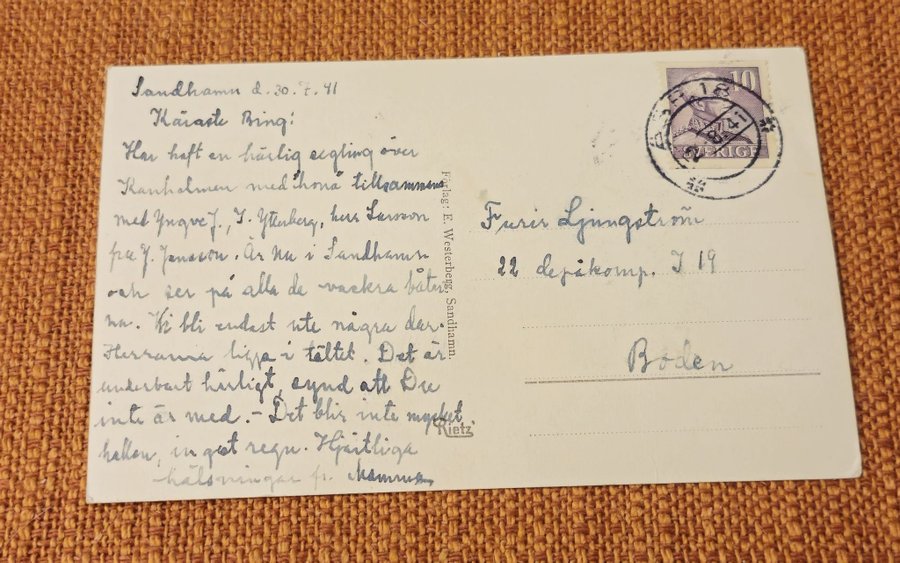 Sandhamn d. 30.7.41
Käraste Bing!
Har haft en härlig segling över
Kanholmen med "hona" tillsammans
med Yngve J., I. Ytterberg, herr Larsson
J. Jansson. Är nu i Sandhamn
och ser på alla de vackra båtar
na. Vi bli endast ute några dar.
Herrarna ligga i tältet. Det är
underbart härligt, synd att Du
inte är med. - Det blir inte mycket
inget regn. Hjärtliga
hälsningar fr. Mamma
Förlag: E. Westerberg, Sandhamn.
Rietz
10
SVERIGE
2 8 41
Furir Ljungström
22 depåkomp. I 19
Boden